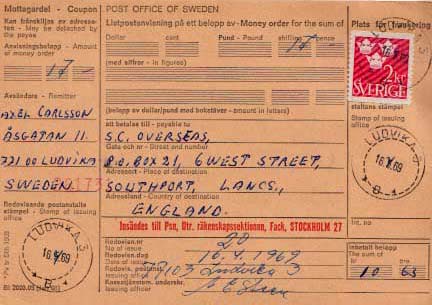 Mottagardel - Coupon
Kan frånskiljas av adressaten - May be detached by the payee
Anvisningsbelopp - Amount of money order
17 -
Avsändare - Remitter
AXEL CARLSSON
ÅSGATAN 11.
771 00 LUDVIKA
SWEDEN.
173
Redovisande postanstalts stämpel - Stamp of issuing office
LUDVIKA 3
16.V.69
B
POST OFFICE OF SWEDEN
Listpostanvisning på ett belopp av - Money order for the sum of
Dollar cent Pund - Pound shilling pence
17 -
(med siffror - in figures)
(belopp av dollar/pund med bokstäver - amount in letters)
att betalas till - payable to
S.C. OVERSEAS,
Gata och nr - Street and number
P.O. BOX 21, 6 WEST STREET,
Adressort - Place of destination
SOUTHPORT, LANCS.,
Adressland - Country of destination
ENGLAND.
Insändes till Psn, Utr. räkenskapssektionen, Fack, STOCKHOLM 27
Redovisn.nr
No of issue
20
Redovisn.dag
Date of issue
16.4.1969
Redovis. postanst.
77103 Ludvika 3
Plats för frankering
2 kr
SVERIGE
staltens stämpel - Stamp of issuing office
LUDVIKA 3
16.V.69
B
Int. no
Inbetalt belopp
The sum of
kr
10 65